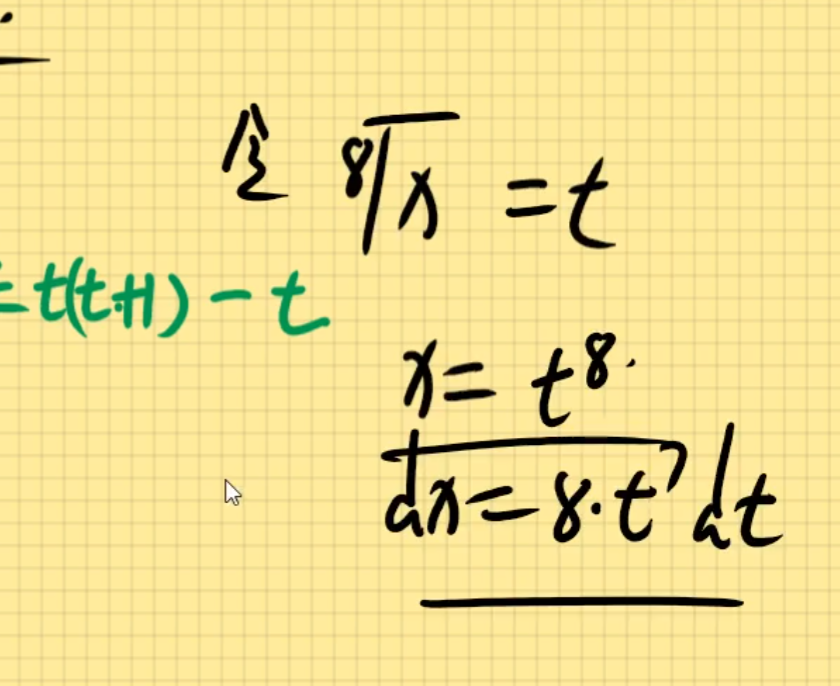 令 ⁸√x = t
= t(t+1) - t
x = t⁸.
dx = 8·t⁷ dt